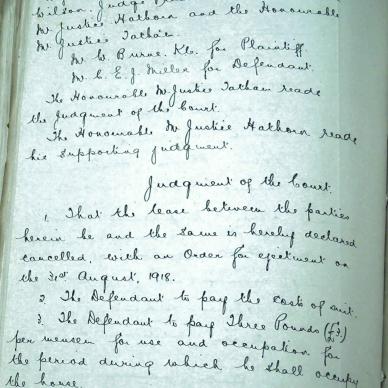 Wilson. Judge
Mr Justice Hathorn and the Honourable
Mr Justice Tatham.
Mr W. Burne. K.C. for Plaintiff
Mr C. E. J. Miller for Defendant.
The Honourable Mr Justice Tatham reads
the Judgment of the Court.
The Honourable Mr Justice Hathorn reads
his supporting judgment.
Judgment of the Court.
1. That the lease between the parties
herein be and the same is hereby declared
cancelled, with an Order for ejectment on
the 31st August, 1918.
2. The Defendant to pay the costs of suit.
3. The Defendant to pay Three Pounds (£3)
per mensem for use and occupation for
the period during which he shall occupy
the house